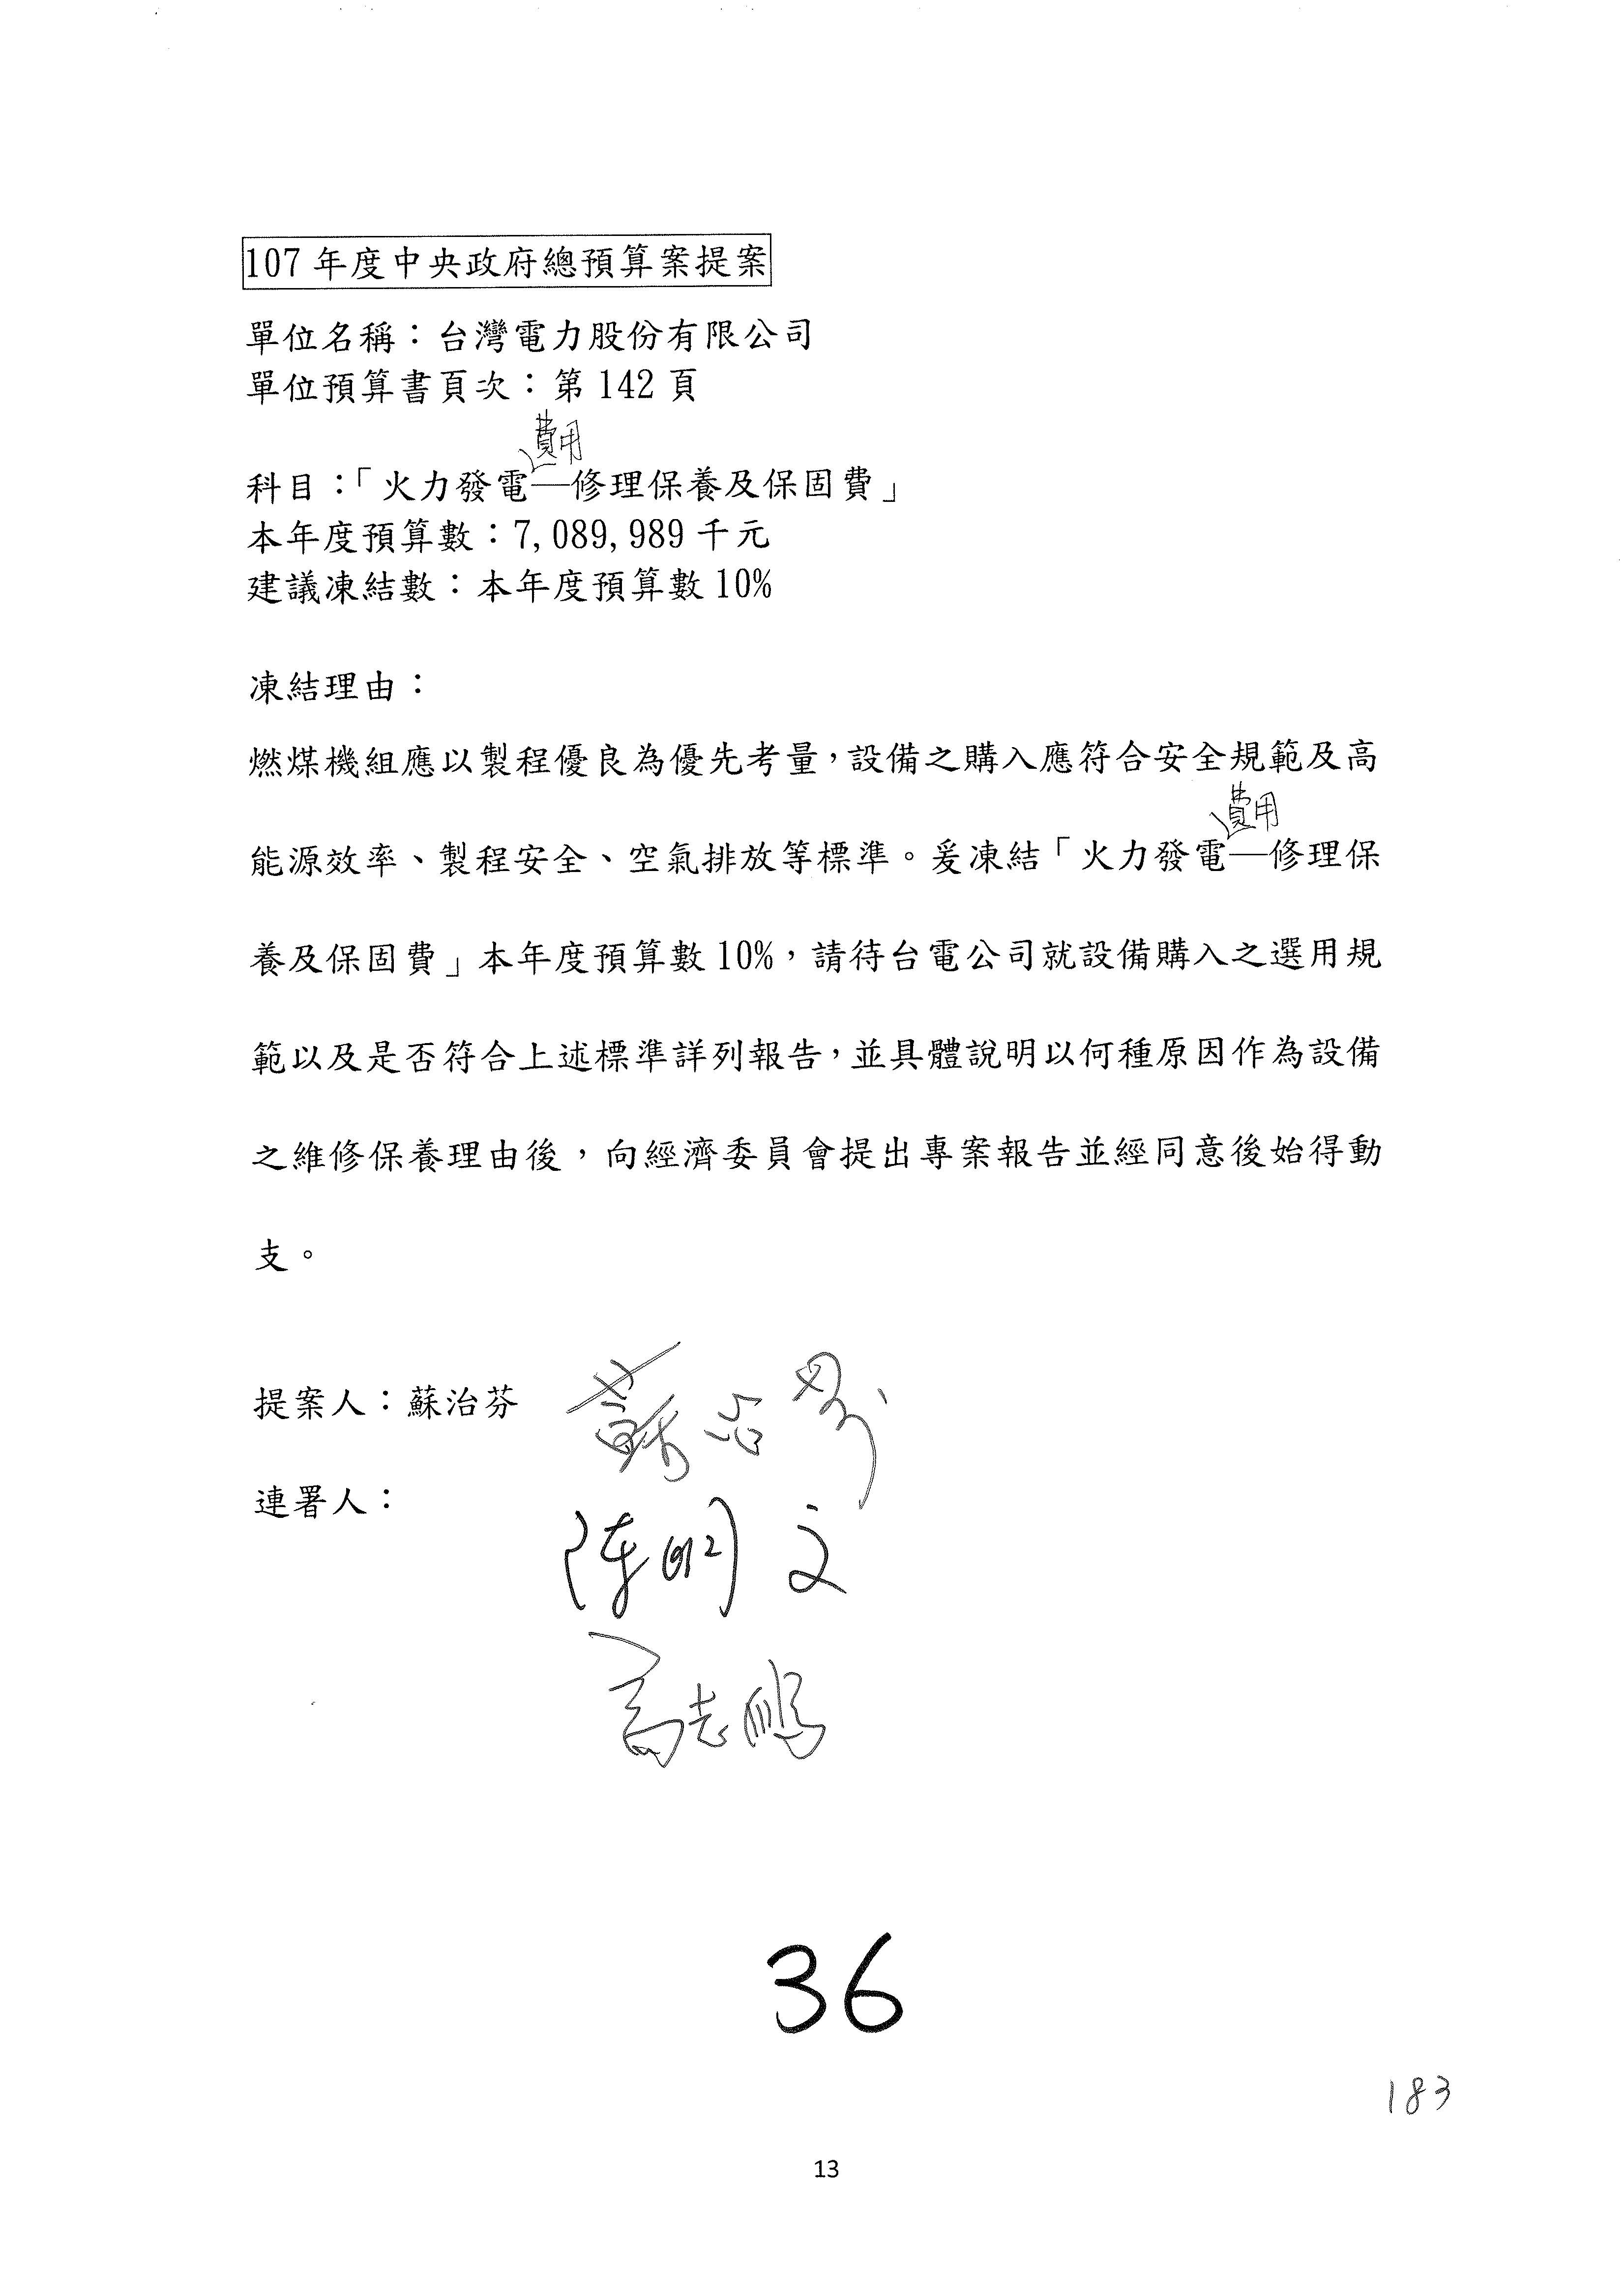 107 年度中央政府總預算案提案
單位名稱：台灣電力股份有限公司
單位預算書頁次：第 142 頁
費用
科目：「火力發電—修理保養及保固費」
本年度預算數：7,089,989 千元
建議凍結數：本年度預算數 10%
凍結理由：
燃煤機組應以製程優良為優先考量，設備之購入應符合安全規範及高
費用
能源效率、製程安全、空氣排放等標準。爰凍結「火力發電—修理保
養及保固費」本年度預算數 10%，請待台電公司就設備購入之選用規
範以及是否符合上述標準詳列報告，並具體說明以何種原因作為設備
之維修保養理由後，向經濟委員會提出專案報告並經同意後始得動
支。
提案人：蘇治芬 蘇治芬
連署人：
陳明文
高志鵬
36
183
13